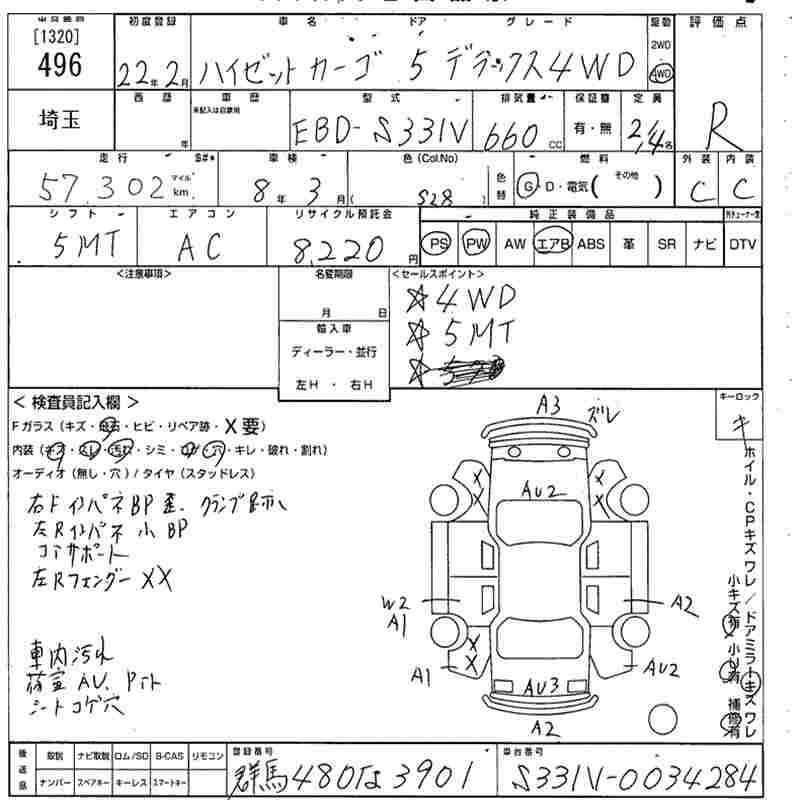 [1320]
496
埼玉
初度登録 車名 ドア グレード 駆動 評価点
22年2月 ハイゼットカーゴ 5 デラックス4WD 2WD 4WD
西暦 車歴 型式 排気量 保証書 定員
未記入は自家用
年 EBD-S331V 660 CC 有・無 2/4名 R
走行 車検 色(Col.No) 色替 燃料 外装 内装
57,302 マイル km 8年3月( S28 ) G・D・電気( その他 ) C C
シフト エアコン リサイクル預託金 純正装備品
5MT AC 8,220円 PS PW AW エアB ABS 革 SR ナビ DTV
<注意事項> 名変期限 <セールスポイント>
月 日
☆4WD
輸入車
☆5MT
ディーラー・並行
☆
左H・右H
<検査員記入欄> キーロック
キ
Fガラス(キズ・飛石・ヒビ・リペア跡・X要)
内装(キズ・スレ・汚れ・シミ・コゲ・穴・キレ・破れ・割れ)
オーディオ(無し・穴)/タイヤ(スタッドレス)
右FインパネBP歪、クランプ跡
左Rインパネ 小BP
コアサポート
左Rフェンダー XX
車内汚れ
荷室AU、
シートコゲ穴
A3 ズレ
X X X X
AU2
W2 A2
A1
X X
A1 AU2
AU3
A2
ホイル・CPキズワレ/ドアミラーキズワレ
小キズ有 小U有 補修有
後送品 取説 ナビ取説 ロム/SD B-CAS リモコン 登録番号 車台番号
ナンバー スペアキー キーレス スマートキー 群馬480な3901 S331V-0034284